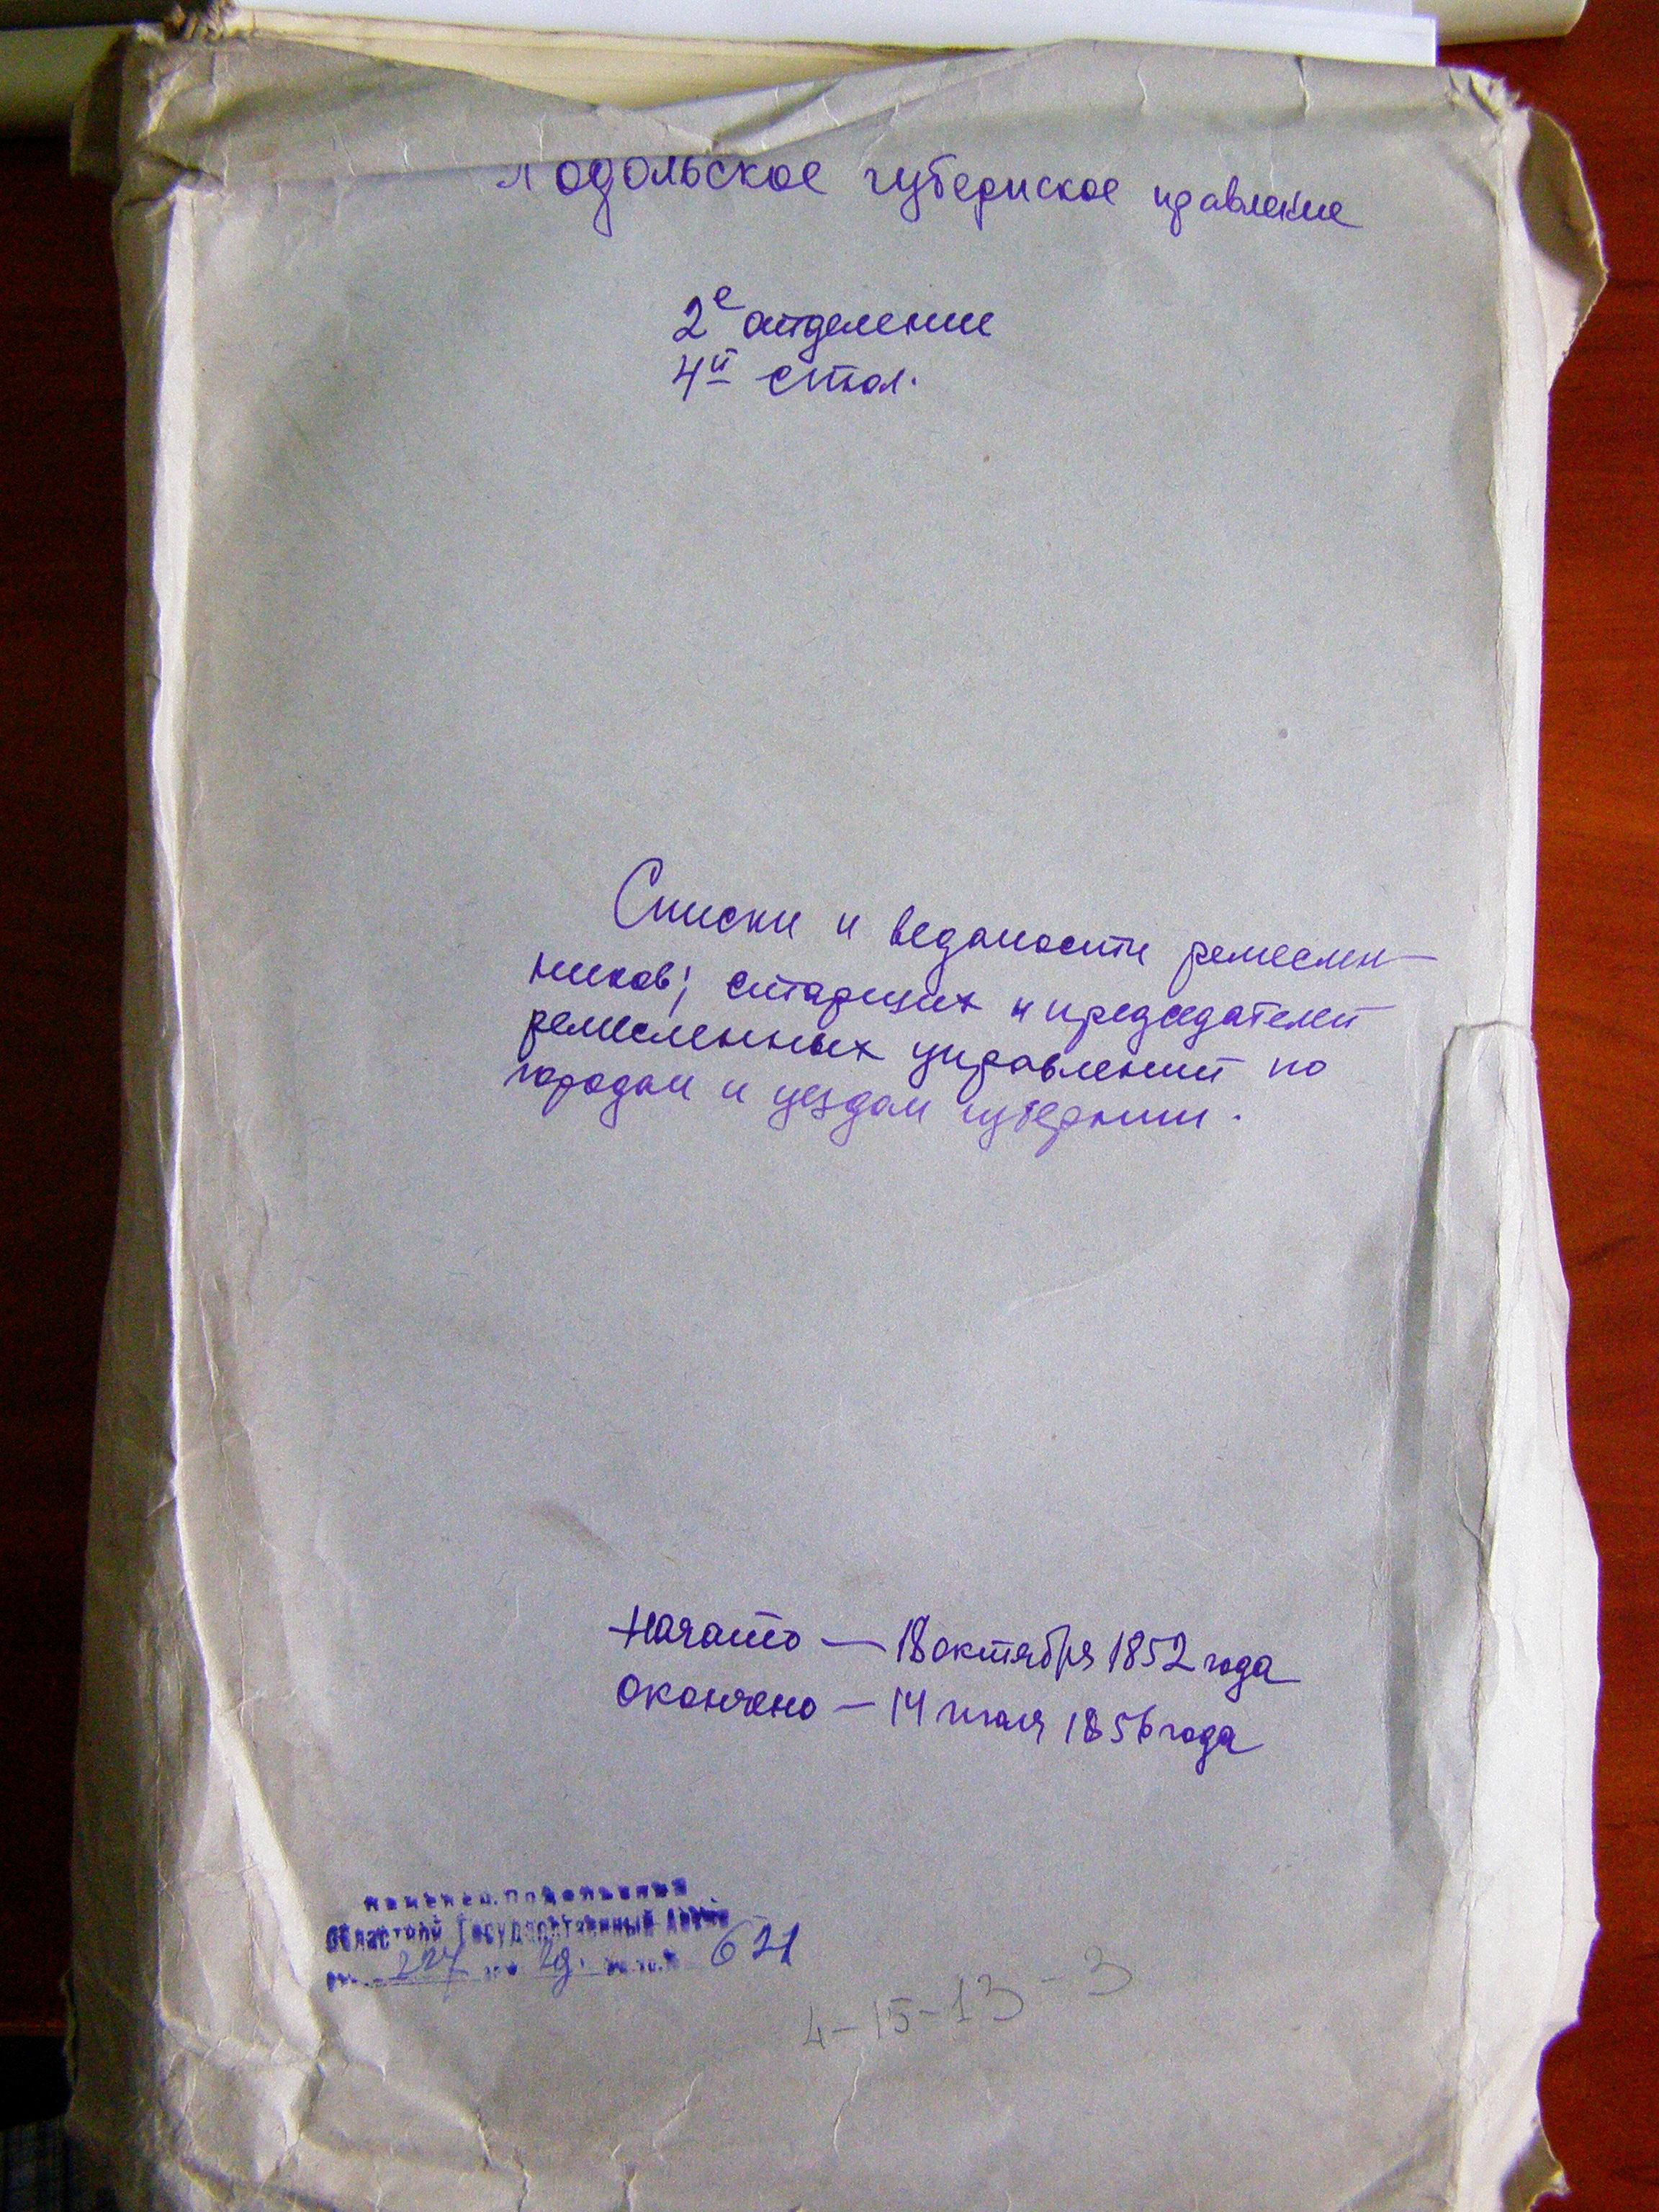 Подольское губернское правление
2е отделение
4й стол.
Списки и ведомости ремеслен-
ников; старших и председателей
ремесленных управлений по
городам и уездам губернии.
Начато — 18 октября 1852 года
Окончено — 14 июля 1856 года
Областной Государственный
227 621
4-15-13-3